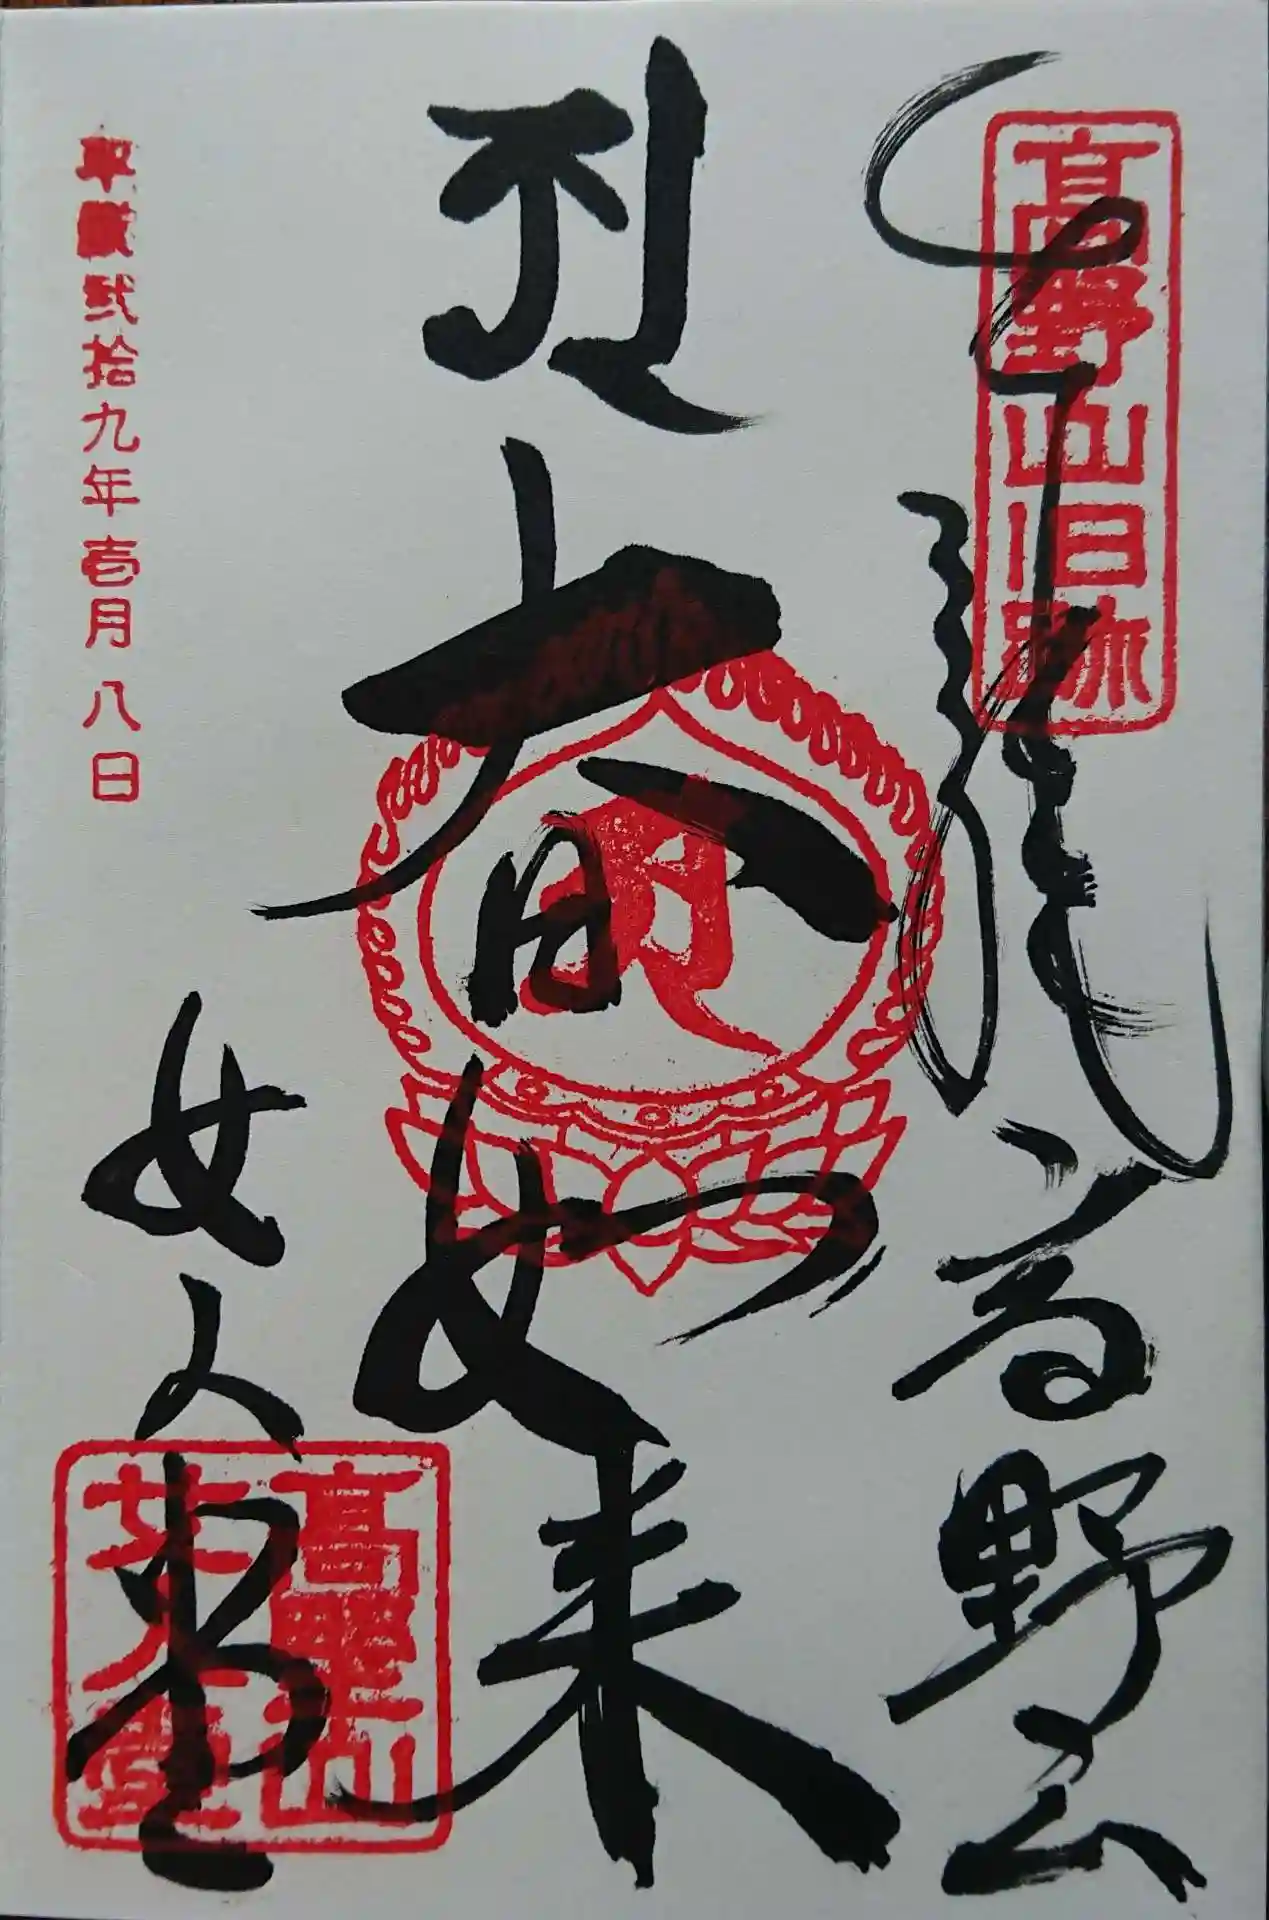 高野山旧跡
高野山
大日如来
女人堂
高野山
女人堂
平成弐拾九年壱月八日